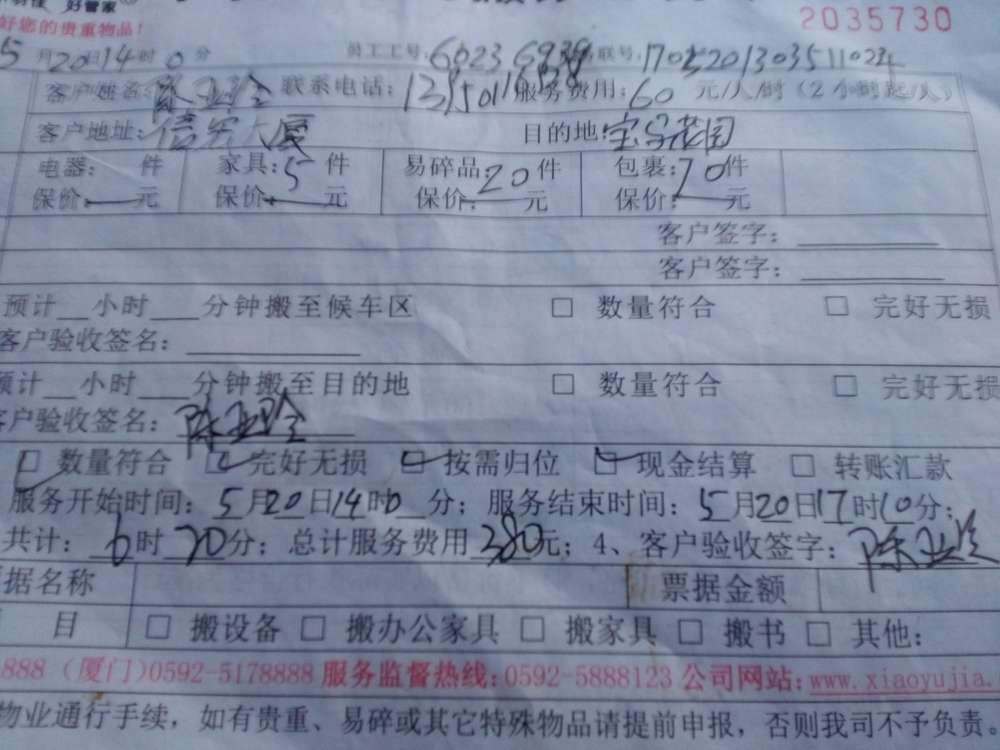 好管家
好您的贵重物品！ 2035730
5月20日14时0分 员工工号：6023 6939 联号：
客户姓名： 联系电话： 服务费用：60 元/人/时（2小时起/人）
客户地址： 大厦 目的地：宝 花园
电器： 件 家具：5 件 易碎品：20 件 包裹：70 件
保价： 元 保价： 元 保价： 元 保价： 元
客户签字：
客户签字：
预计__小时___分钟搬至候车区 □ 数量符合 □ 完好无损
客户验收签名：
预计__小时___分钟搬至目的地 □ 数量符合 □ 完好无损
客户验收签名：陈亚玲
□ 数量符合 □ 完好无损 □ 按需归位 □ 现金结算 □ 转账汇款
服务开始时间：5月20日14时0分；服务结束时间：5月20日17时10分；
共计：6时20分；总计服务费用380元；4、客户验收签字：陈亚玲
据名称 票据金额
目 □ 搬设备 □ 搬办公家具 □ 搬家具 □ 搬书 □ 其他：
888（厦门)0592-5178888 服务监督热线：0592-5888123 公司网站：www.xiaoyujia.
物业通行手续，如有贵重、易碎或其它特殊物品请提前申报，否则我司不予负责。